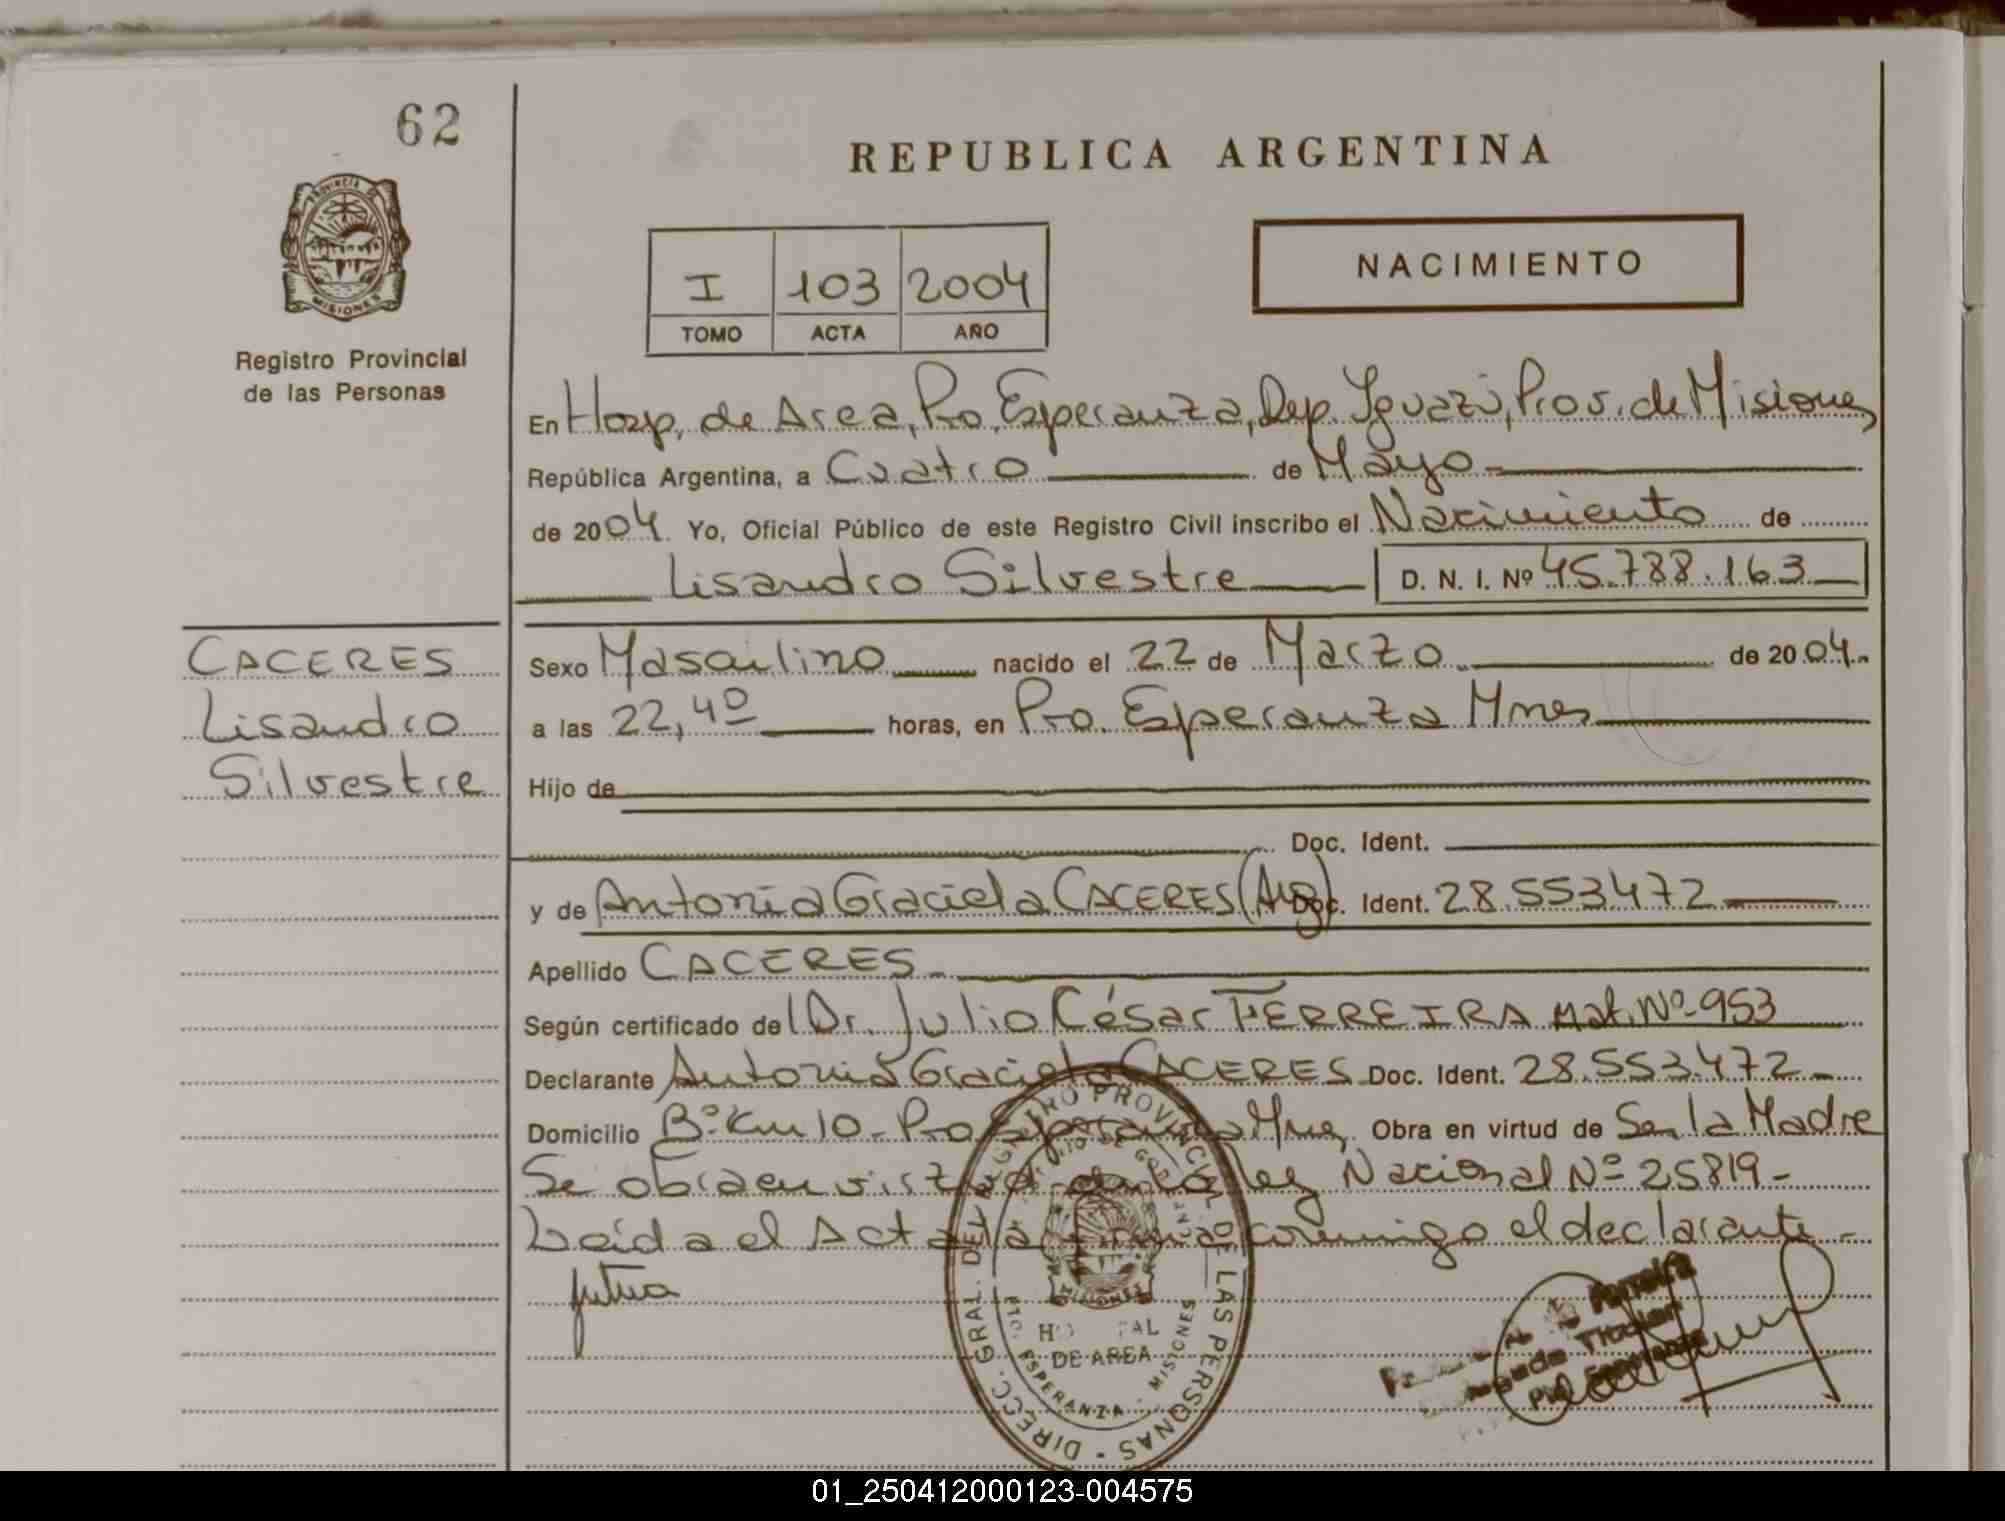 62
REPUBLICA ARGENTINA
PROVINCIA DE
MISIONES
Registro Provincial
de las Personas
I 103 2004
TOMO ACTA AÑO
NACIMIENTO
En Hosp. de Area, Pto. Esperanza, Dep. Iguazú, Prov. de Misiones
República Argentina, a Cuatro de Mayo
de 2004. Yo, Oficial Público de este Registro Civil inscribo el Nacimiento de
Lisandro Silvestre D. N. I. Nº 45.788.163
CACERES
Lisandro
Silvestre
Sexo Masculino nacido el 22 de Marzo de 2004.
a las 22,40 horas, en Pto. Esperanza Mnes
Hijo de
Doc. Ident.
y de Antonia Graciela CACERES (Arg) Doc. Ident. 28.553.472
Apellido CACERES
Según certificado del Dr. Julio César FERREIRA Mat. Nº 953
Declarante Antonia Graciela CACERES Doc. Ident. 28.553.472
Domicilio Bº Km 10 - Pto Esperanza Mnes Obra en virtud de Ser la Madre
Se obra en virtud de la ley Nacional Nº 25819-
Leída el Acta la firma conmigo el declarante -
DIRECC. GRAL. DEL REGISTRO PROVINCIAL DE LAS PERSONAS
MISIONES
DE AREA
PTO. ESPERANZA - MISIONES
Ferreira
Titular
01_250412000123-004575